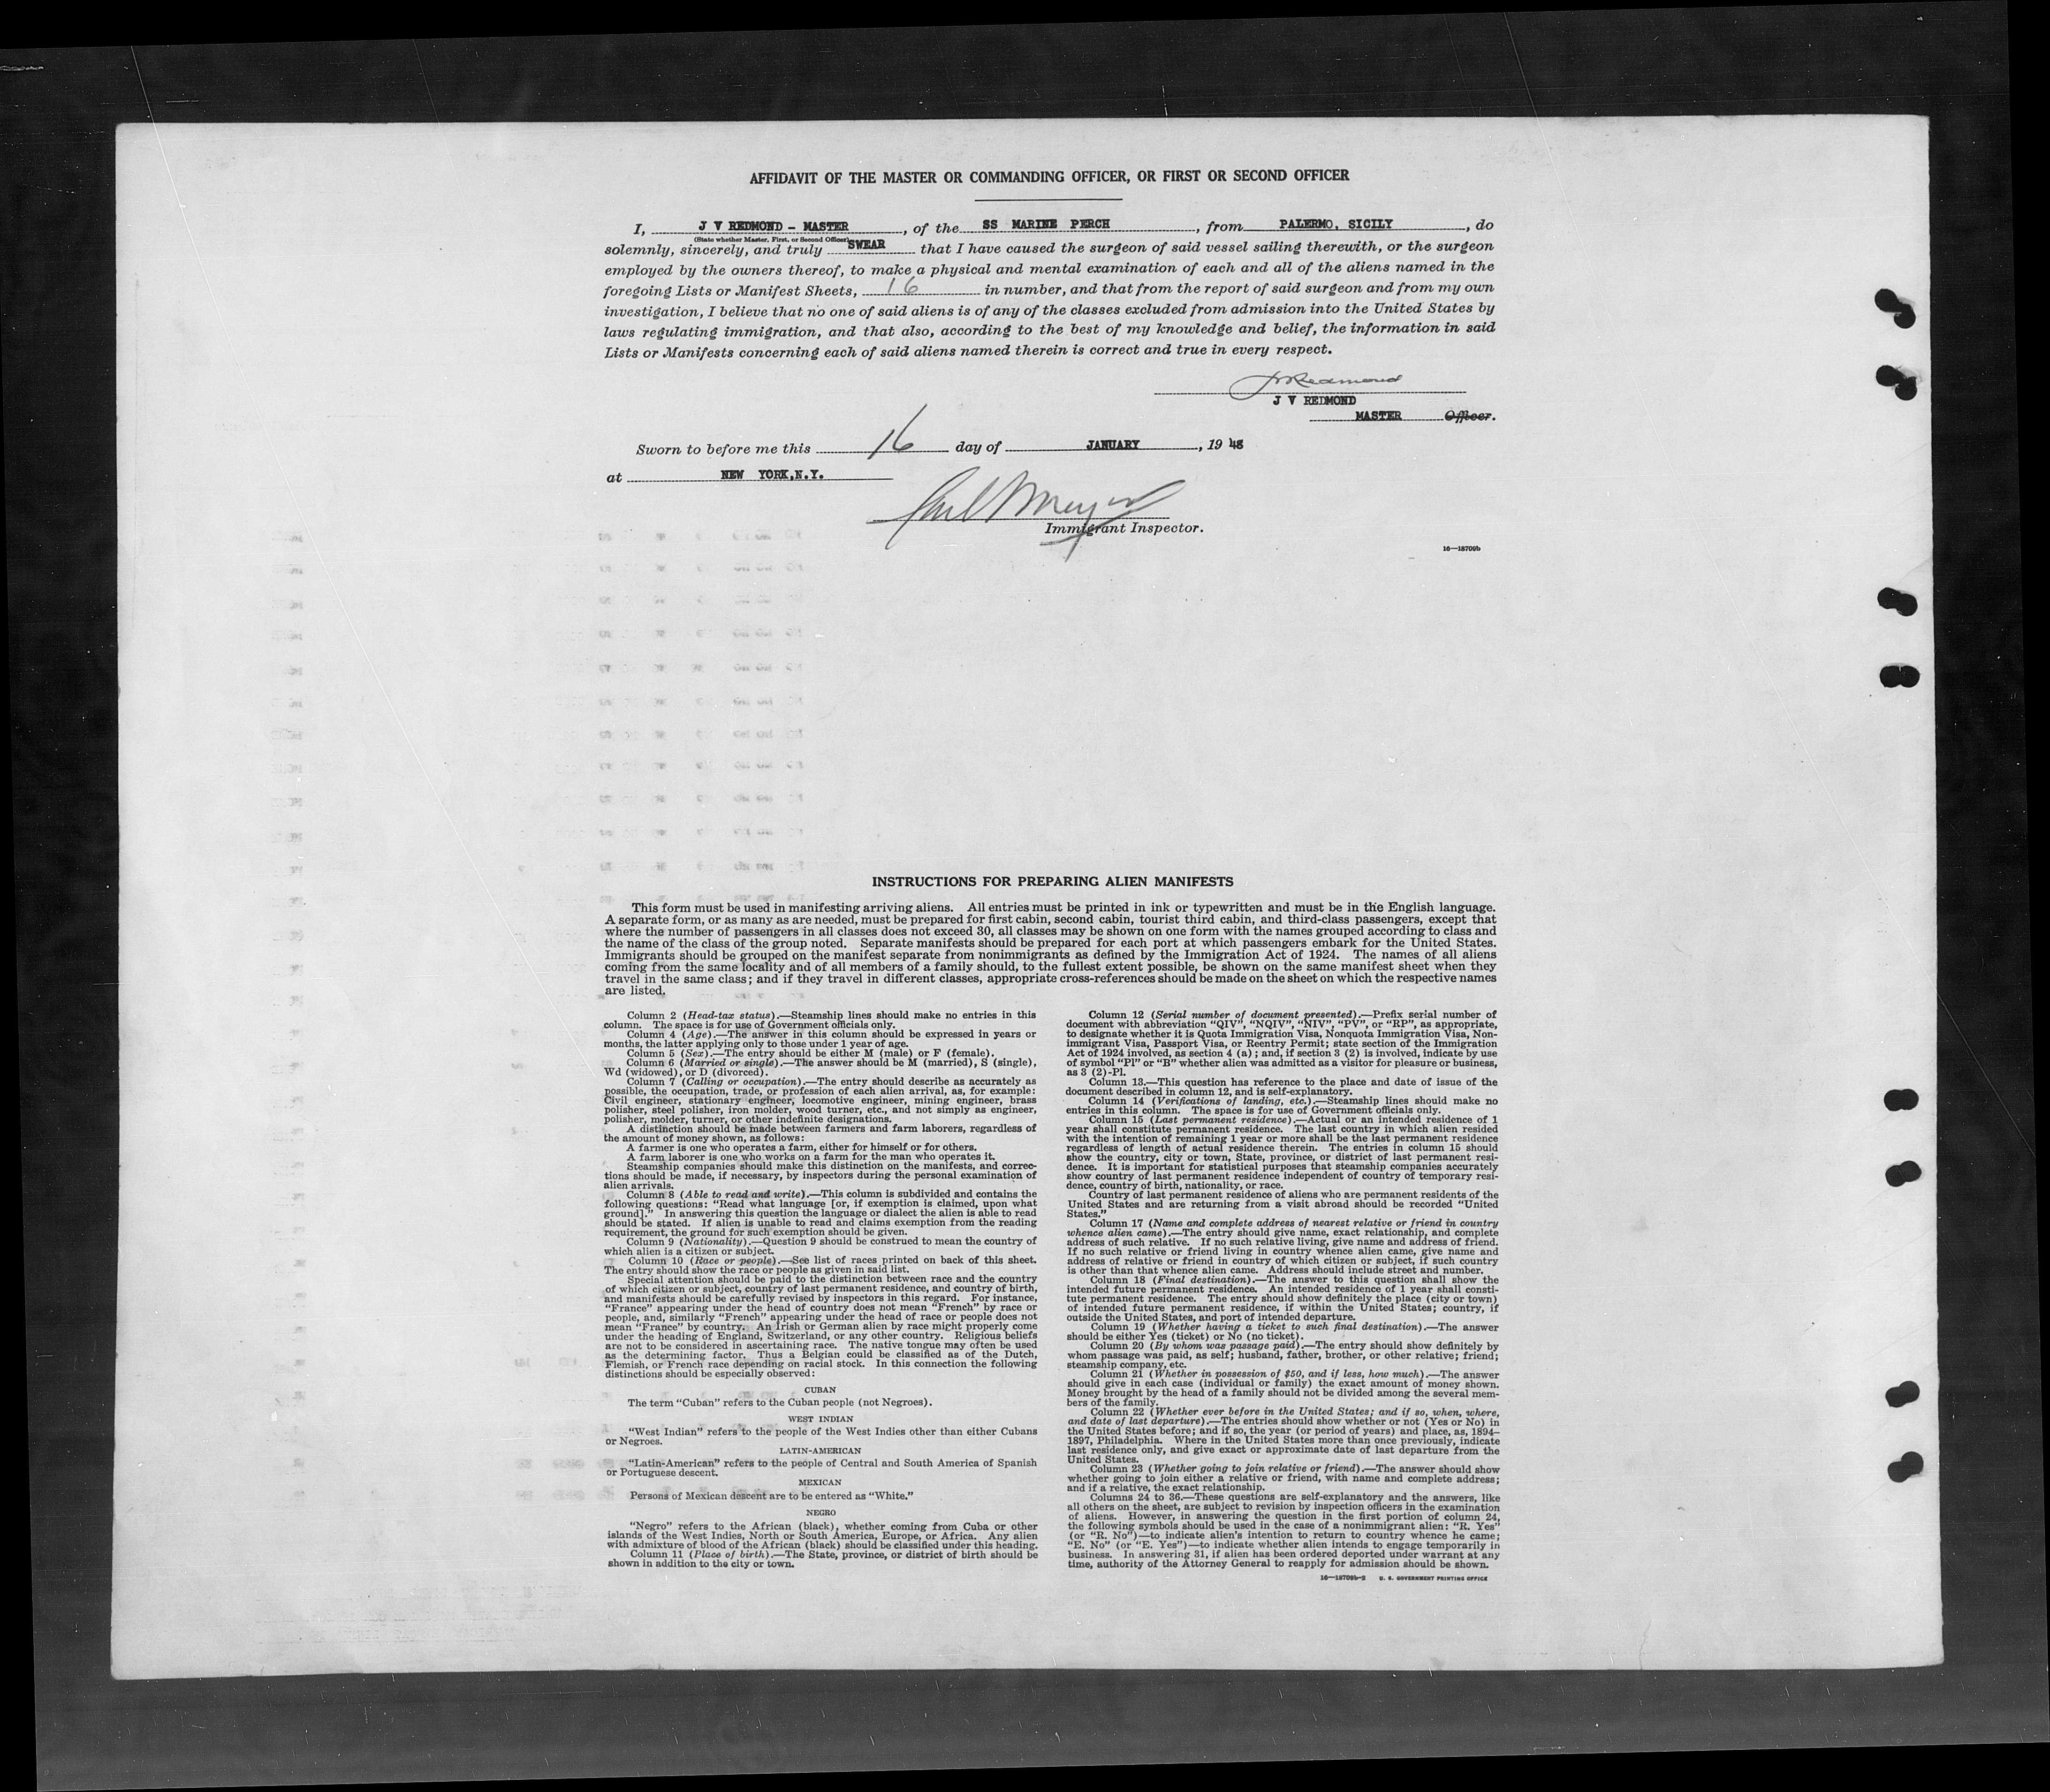 AFFIDAVIT OF THE MASTER OR COMMANDING OFFICER, OR FIRST OR SECOND OFFICER
I, J V REDMOND - MASTER, of the SS MARINE PERCH, from PALERMO, SICILY, do
(State whether Master, First, or Second Officer)
solemnly, sincerely, and truly SWEAR that I have caused the surgeon of said vessel sailing therewith, or the surgeon
employed by the owners thereof, to make a physical and mental examination of each and all of the aliens named in the
foregoing Lists or Manifest Sheets, 16 in number, and that from the report of said surgeon and from my own
investigation, I believe that no one of said aliens is of any of the classes excluded from admission into the United States by
laws regulating immigration, and that also, according to the best of my knowledge and belief, the information in said
Lists or Manifests concerning each of said aliens named therein is correct and true in every respect.
J V Redmond
J V REDMOND
MASTER Officer.
Sworn to before me this 16 day of JANUARY, 1948
at NEW YORK, N.Y.
Immigrant Inspector.
16—18709b
INSTRUCTIONS FOR PREPARING ALIEN MANIFESTS
This form must be used in manifesting arriving aliens. All entries must be printed in ink or typewritten and must be in the English language.
A separate form, or as many as are needed, must be prepared for first cabin, second cabin, tourist third cabin, and third-class passengers, except that
where the number of passengers in all classes does not exceed 30, all classes may be shown on one form with the names grouped according to class and
the name of the class of the group noted. Separate manifests should be prepared for each port at which passengers embark for the United States.
Immigrants should be grouped on the manifest separate from nonimmigrants as defined by the Immigration Act of 1924. The names of all aliens
coming from the same locality and of all members of a family should, to the fullest extent possible, be shown on the same manifest sheet when they
travel in the same class; and if they travel in different classes, appropriate cross-references should be made on the sheet on which the respective names
are listed.
Column 2 (Head-tax status).—Steamship lines should make no entries in this
column. The space is for use of Government officials only.
Column 4 (Age).—The answer in this column should be expressed in years or
months, the latter applying only to those under 1 year of age.
Column 5 (Sex).—The entry should be either M (male) or F (female).
Column 6 (Married or single).—The answer should be M (married), S (single),
Wd (widowed), or D (divorced).
Column 7 (Calling or occupation).—The entry should describe as accurately as
possible, the occupation, trade, or profession of each alien arrival, as, for example:
Civil engineer, stationary engineer, locomotive engineer, mining engineer, brass
polisher, steel polisher, iron molder, wood turner, etc., and not simply as engineer,
polisher, molder, turner, or other indefinite designations.
A distinction should be made between farmers and farm laborers, regardless of
the amount of money shown, as follows:
A farmer is one who operates a farm, either for himself or for others.
A farm laborer is one who works on a farm for the man who operates it.
Steamship companies should make this distinction on the manifests, and correc-
tions should be made, if necessary, by inspectors during the personal examination of
alien arrivals.
Column 8 (Able to read and write).—This column is subdivided and contains the
following questions: "Read what language [or, if exemption is claimed, upon what
ground]." In answering this question the language or dialect the alien is able to read
should be stated. If alien is unable to read and claims exemption from the reading
requirement, the ground for such exemption should be given.
Column 9 (Nationality).—Question 9 should be construed to mean the country of
which alien is a citizen or subject.
Column 10 (Race or people).—See list of races printed on back of this sheet.
The entry should show the race or people as given in said list.
Special attention should be paid to the distinction between race and the country
of which citizen or subject, country of last permanent residence, and country of birth,
and manifests should be carefully revised by inspectors in this regard. For instance,
"France" appearing under the head of country does not mean "French" by race or
people, and, similarly "French" appearing under the head of race or people does not
mean "France" by country. An Irish or German alien by race might properly come
under the heading of England, Switzerland, or any other country. Religious beliefs
are not to be considered in ascertaining race. The native tongue may often be used
as the determining factor. Thus a Belgian could be classified as of the Dutch,
Flemish, or French race depending on racial stock. In this connection the following
distinctions should be especially observed:
CUBAN
The term "Cuban" refers to the Cuban people (not Negroes).
WEST INDIAN
"West Indian" refers to the people of the West Indies other than either Cubans
or Negroes.
LATIN-AMERICAN
"Latin-American" refers to the people of Central and South America of Spanish
or Portuguese descent.
MEXICAN
Persons of Mexican descent are to be entered as "White."
NEGRO
"Negro" refers to the African (black), whether coming from Cuba or other
islands of the West Indies, North or South America, Europe, or Africa. Any alien
with admixture of blood of the African (black) should be classified under this heading.
Column 11 (Place of birth).—The State, province, or district of birth should be
shown in addition to the city or town.
Column 12 (Serial number of document presented).—Prefix serial number of
document with abbreviation "QIV", "NQIV", "NIV", "PV", or "RP", as appropriate,
to designate whether it is Quota Immigration Visa, Nonquota Immigration Visa, Non-
immigrant Visa, Passport Visa, or Reentry Permit; state section of the Immigration
Act of 1924 involved, as section 4 (a); and, if section 3 (2) is involved, indicate by use
of symbol "Pl" or "B" whether alien was admitted as a visitor for pleasure or business,
as 3 (2)-Pl.
Column 13.—This question has reference to the place and date of issue of the
document described in column 12, and is self-explanatory.
Column 14 (Verifications of landing, etc.).—Steamship lines should make no
entries in this column. The space is for use of Government officials only.
Column 15 (Last permanent residence).—Actual or an intended residence of 1
year shall constitute permanent residence. The last country in which alien resided
with the intention of remaining 1 year or more shall be the last permanent residence
regardless of length of actual residence therein. The entries in column 15 should
show the country, city or town, State, province, or district of last permanent resi-
dence. It is important for statistical purposes that steamship companies accurately
show country of last permanent residence independent of country of temporary resi-
dence, country of birth, nationality, or race.
Country of last permanent residence of aliens who are permanent residents of the
United States and are returning from a visit abroad should be recorded "United
States."
Column 17 (Name and complete address of nearest relative or friend in country
whence alien came).—The entry should give name, exact relationship, and complete
address of such relative. If no such relative living, give name and address of friend.
If no such relative or friend living in country whence alien came, give name and
address of relative or friend in country of which citizen or subject, if such country
is other than that whence alien came. Address should include street and number.
Column 18 (Final destination).—The answer to this question shall show the
intended future permanent residence. An intended residence of 1 year shall consti-
tute permanent residence. The entry should show definitely the place (city or town)
of intended future permanent residence, if within the United States; country, if
outside the United States, and port of intended departure.
Column 19 (Whether having a ticket to such final destination).—The answer
should be either Yes (ticket) or No (no ticket).
Column 20 (By whom was passage paid).—The entry should show definitely by
whom passage was paid, as self; husband, father, brother, or other relative; friend;
steamship company, etc.
Column 21 (Whether in possession of $50, and if less, how much).—The answer
should give in each case (individual or family) the exact amount of money shown.
Money brought by the head of a family should not be divided among the several mem-
bers of the family.
Column 22 (Whether ever before in the United States; and if so, when, where,
and date of last departure).—The entries should show whether or not (Yes or No) in
the United States before; and if so, the year (or period of years) and place, as, 1894–
1897, Philadelphia. Where in the United States more than once previously, indicate
last residence only, and give exact or approximate date of last departure from the
United States.
Column 23 (Whether going to join relative or friend).—The answer should show
whether going to join either a relative or friend, with name and complete address;
and if a relative, the exact relationship.
Columns 24 to 36.—These questions are self-explanatory and the answers, like
all others on the sheet, are subject to revision by inspection officers in the examination
of aliens. However, in answering the question in the first portion of column 24,
the following symbols should be used in the case of a nonimmigrant alien: "R. Yes"
(or "R. No")—to indicate alien's intention to return to country whence he came;
"E. No" (or "E. Yes")—to indicate whether alien intends to engage temporarily in
business. In answering 31, if alien has been ordered deported under warrant at any
time, authority of the Attorney General to reapply for admission should be shown.
16—18709b-2 U. S. GOVERNMENT PRINTING OFFICE